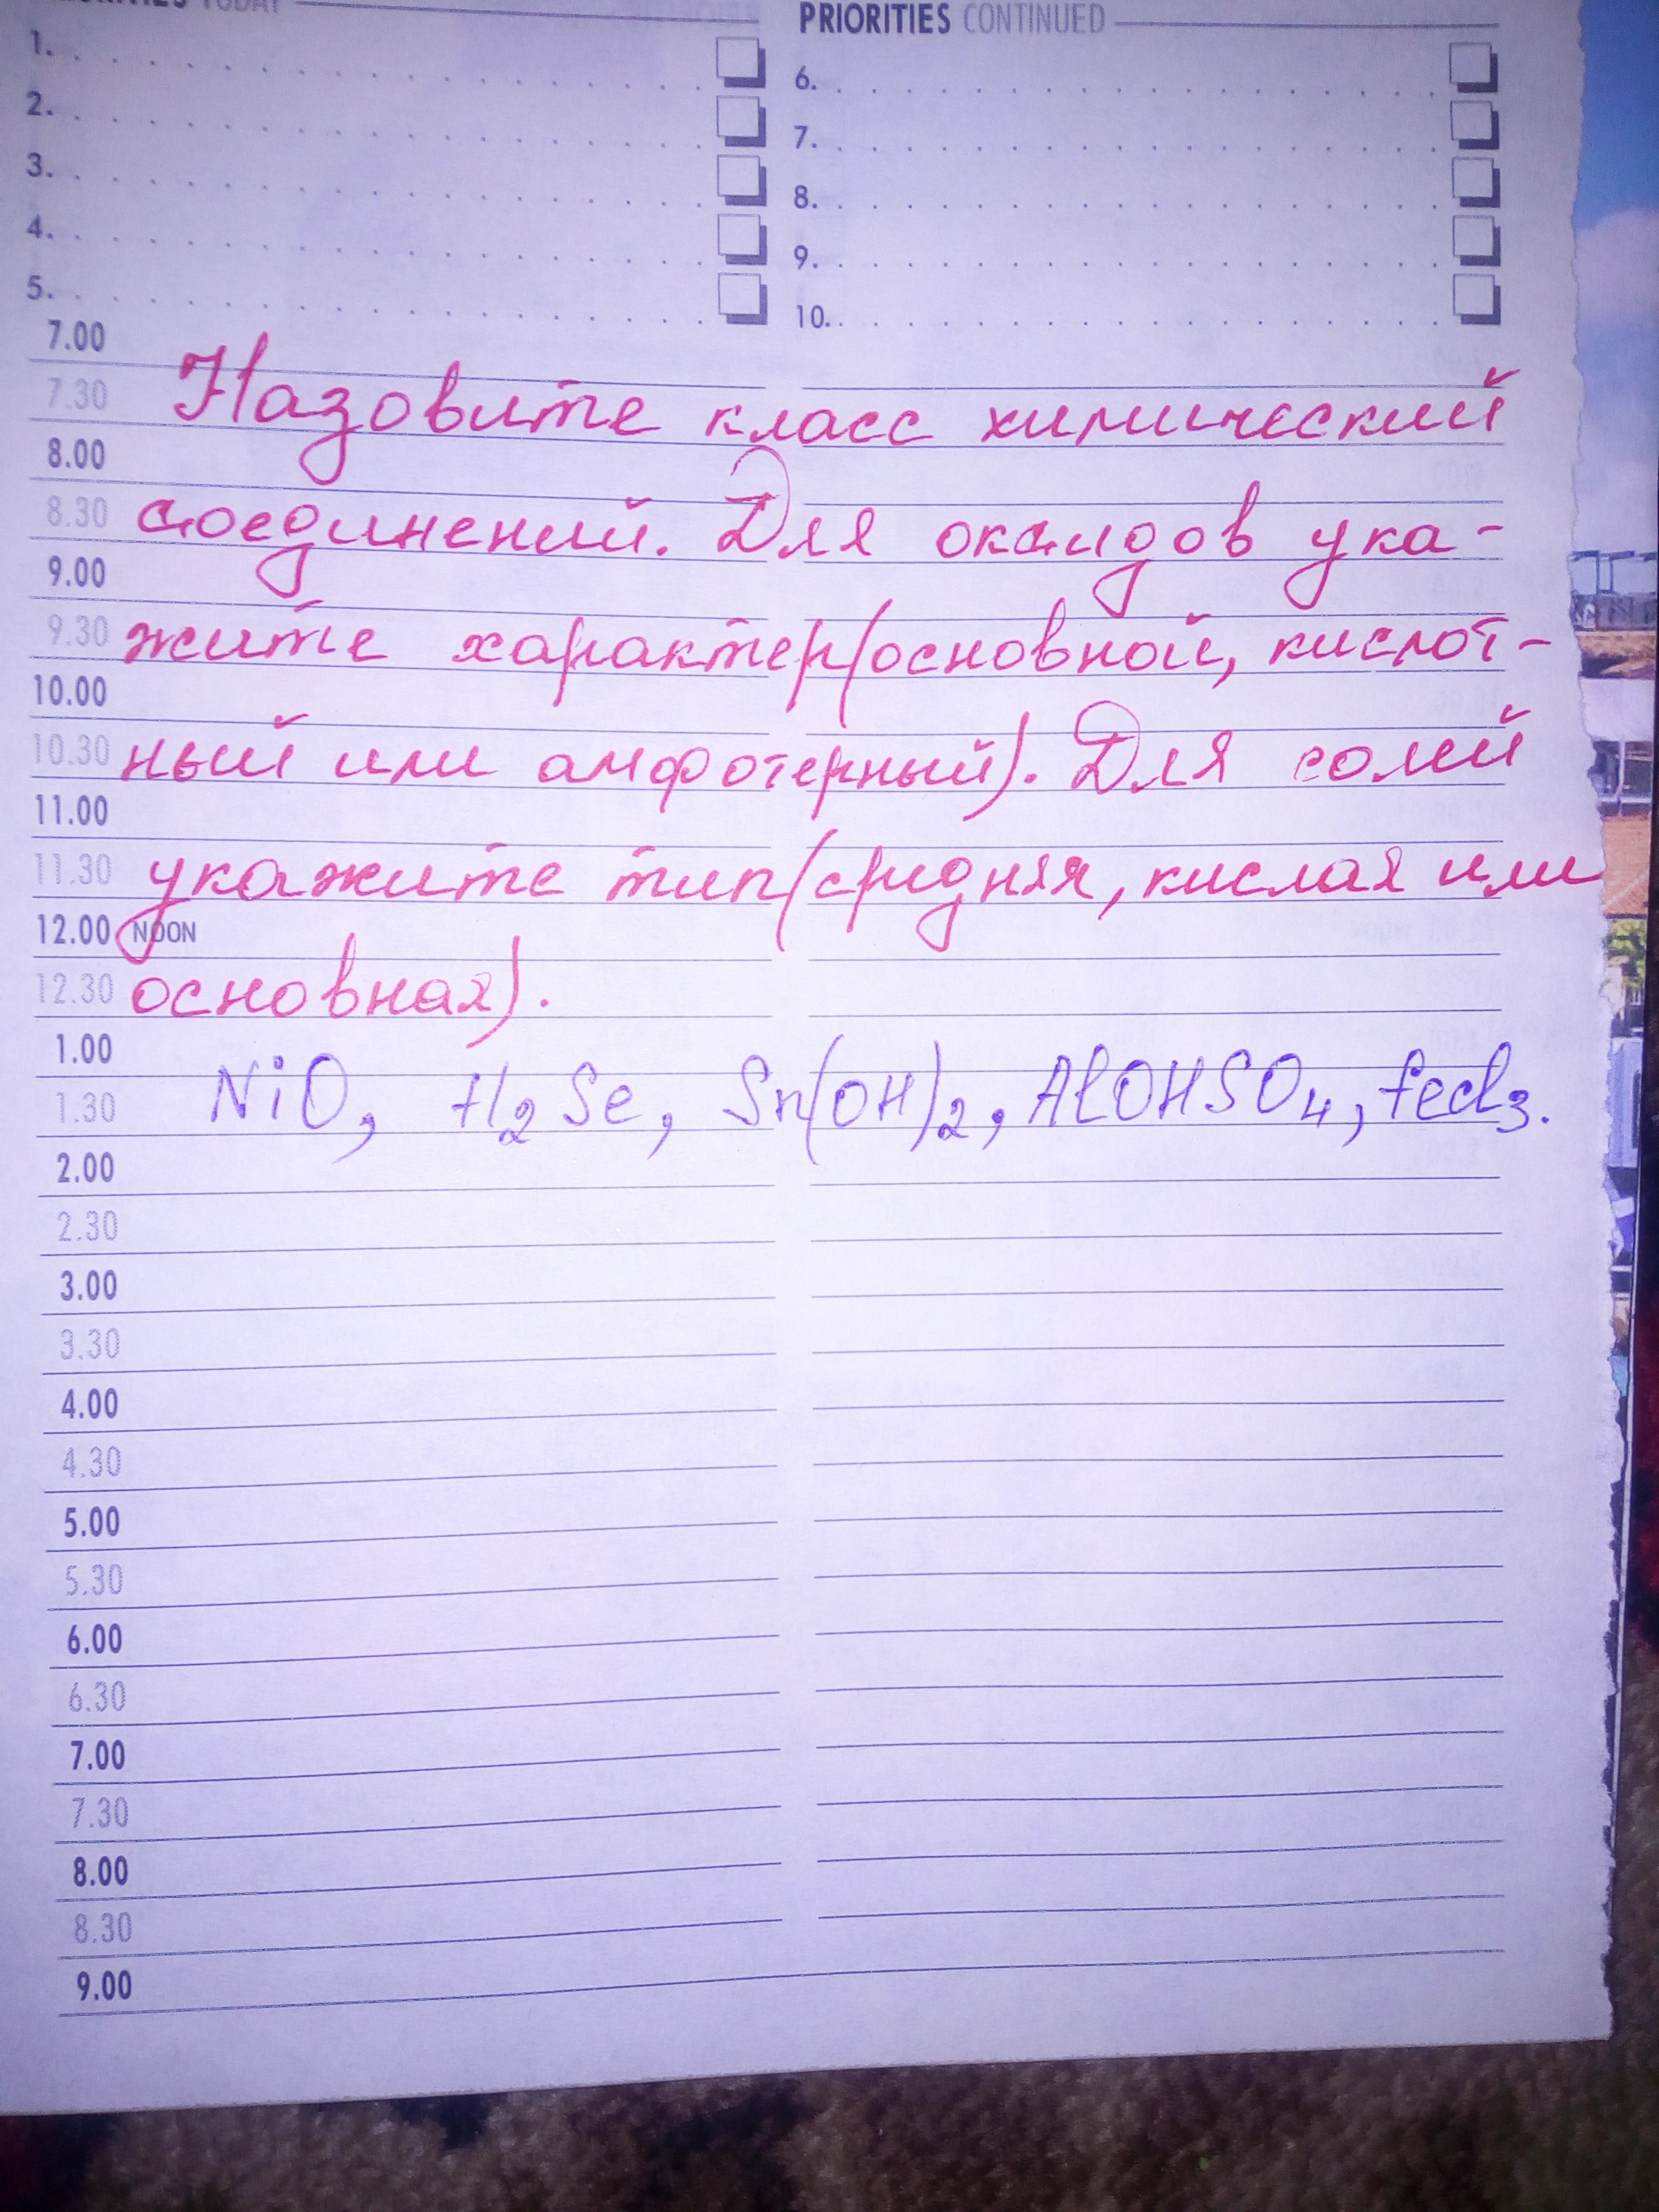 PRIORITIES CONTINUED
1.
2.
3.
4.
5.
6.
7.
8.
9.
10.
7.00
7.30 Назовите класс химический
8.00
8.30 соединений. Для оксидов ука-
9.00
9.30 жите характер(основной, кислот-
10.00
10.30 ный или амфотерный). Для солей
11.00
11.30 укажите тип(средняя, кислая или
12.00 NOON
12.30 основная).
1.00
1.30 NiO, H₂Se, Sn(OH)₂, AlOHSO₄, fecl₃.
2.00
2.30
3.00
3.30
4.00
4.30
5.00
5.30
6.00
6.30
7.00
7.30
8.00
8.30
9.00